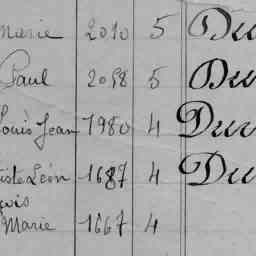 Marie 2010 5 Du
Paul 2098 5 Du
Louis Jean 1980 4 Dur
iste Léon 1687 4 Du
çois
Marie 1667 4